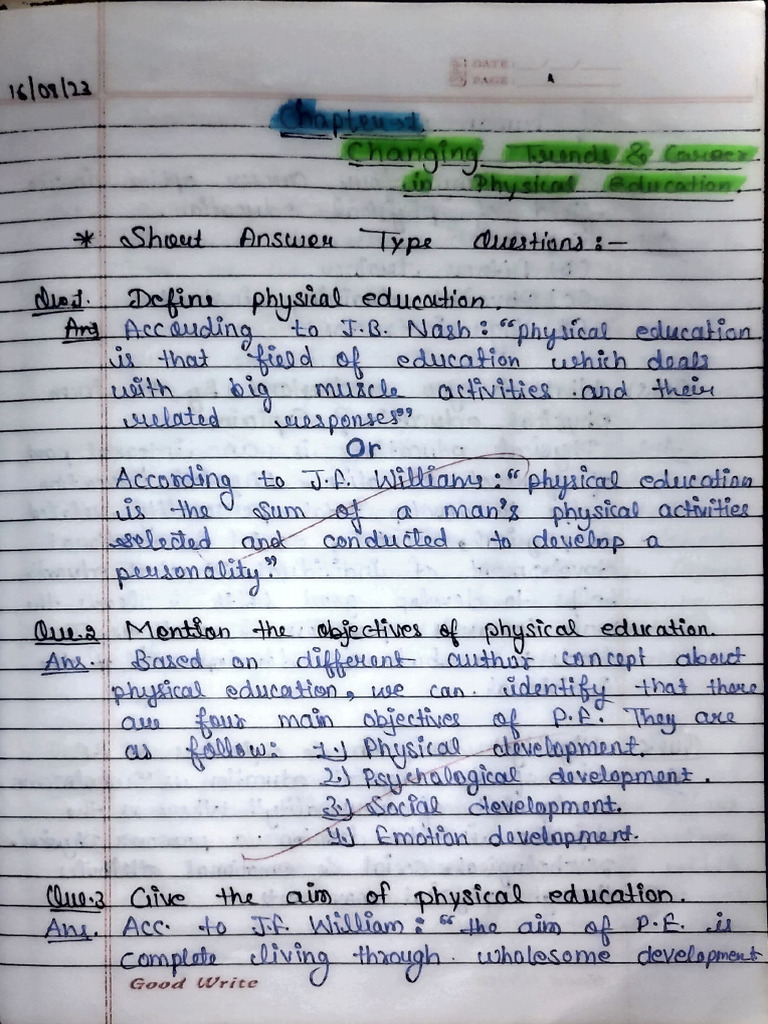 DATE:
PAGE:
16/08/23
Chapter-1
Changing Trends & Career
in Physical education
* Short Answer Type Questions:-
Que.1. Define physical education.
Ans According to J.B. Nash: "physical education
is that field of education which deals
with big muscle activities and their
related responses"
Or
According to J.F. Williams: "physical education
is the sum of a man's physical activities
selected and conducted to develop a
personality."
Que.2 Mention the objectives of physical education.
Ans. Based on different author concept about
physical education, we can identify that there
are four main objectives of P.E. They are
as follow: 1.) Physical development.
2.) Psychological development.
3.) Social development.
4.) Emotion development.
Que.3 Give the aim of physical education.
Ans. Acc. to J.F. William: "the aim of P.E. is
complete living through wholesome development
Good Write